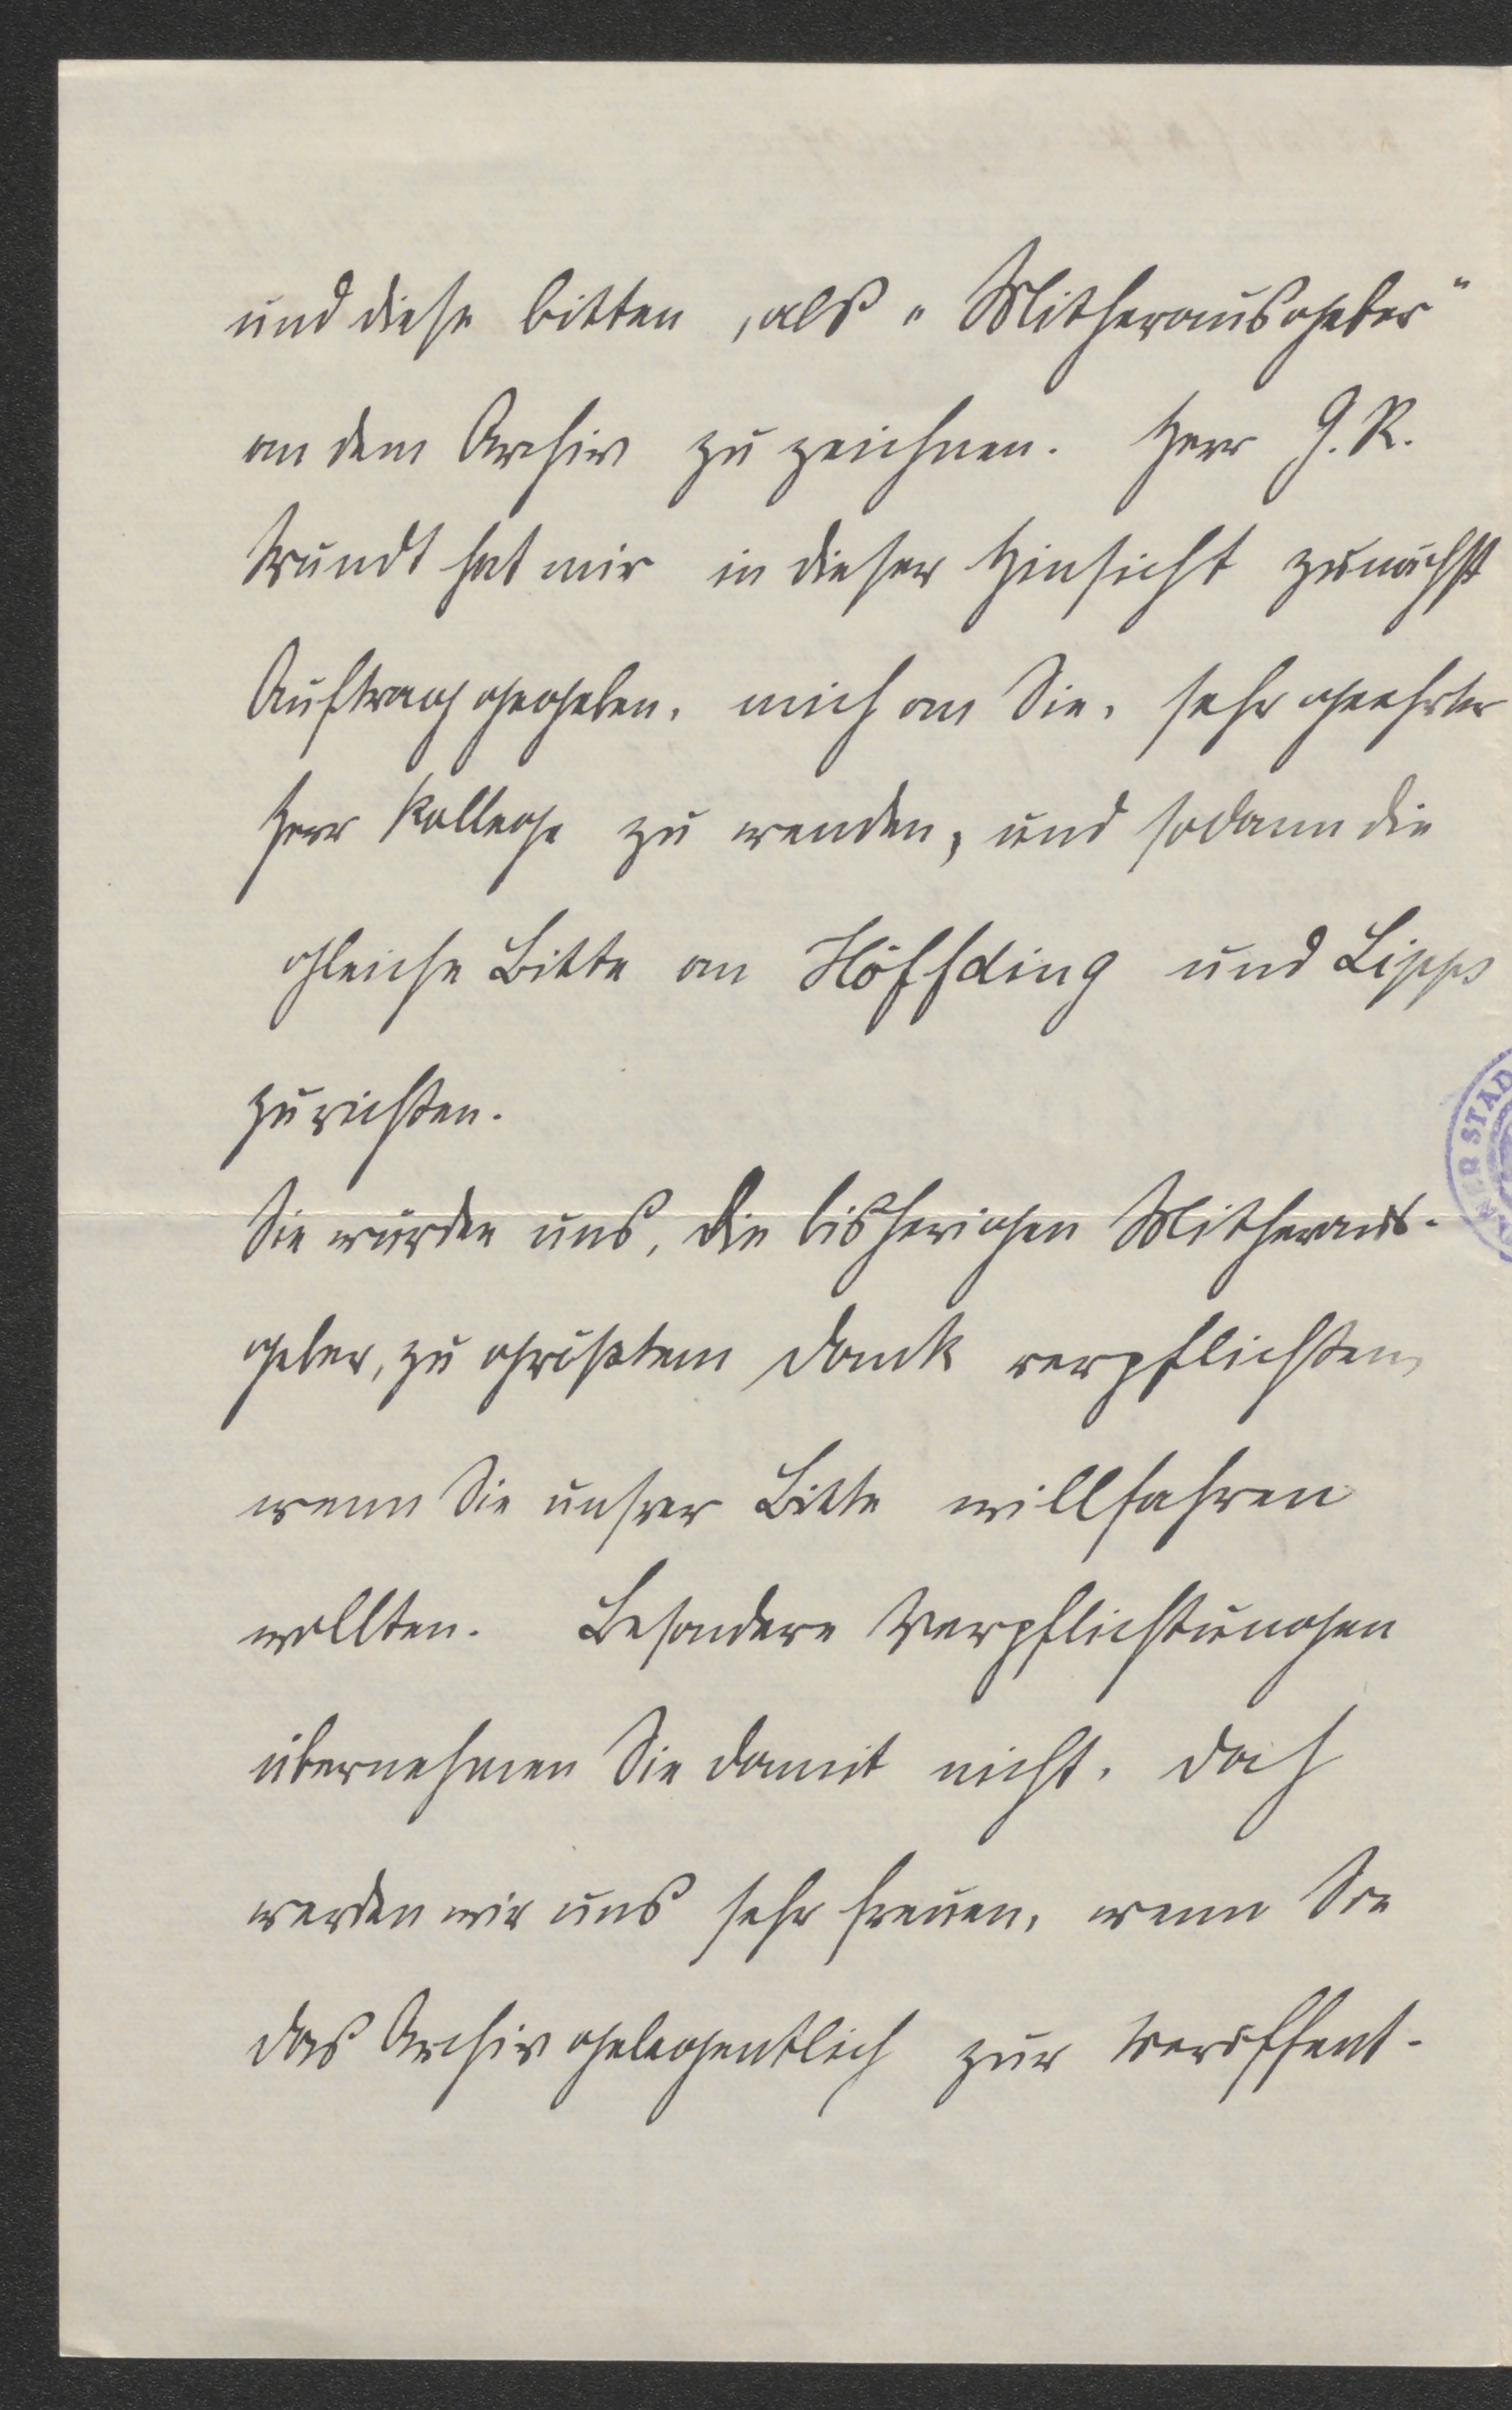 und diese bitten, als „Mitherausgeber"
an dem Archiv zu zeichnen. Herr G. R.
Wundt hat mir in dieser Hinsicht zunächst
Auftrag gegeben, mich an Sie, sehr geehrter
Herr Kollege zu wenden, und sodann die
gleiche Bitte an Höffding und Lipps
zu richten.
Sie würden uns, die bisherigen Mitheraus-
geber, zu größtem Dank verpflichten,
wenn Sie unsrer Bitte willfahren
wollten. Besondere Verpflichtungen
übernehmen Sie damit nicht, doch
werden wir uns sehr freuen, wenn Sie
das Archiv gelegentlich zur Veröffent-